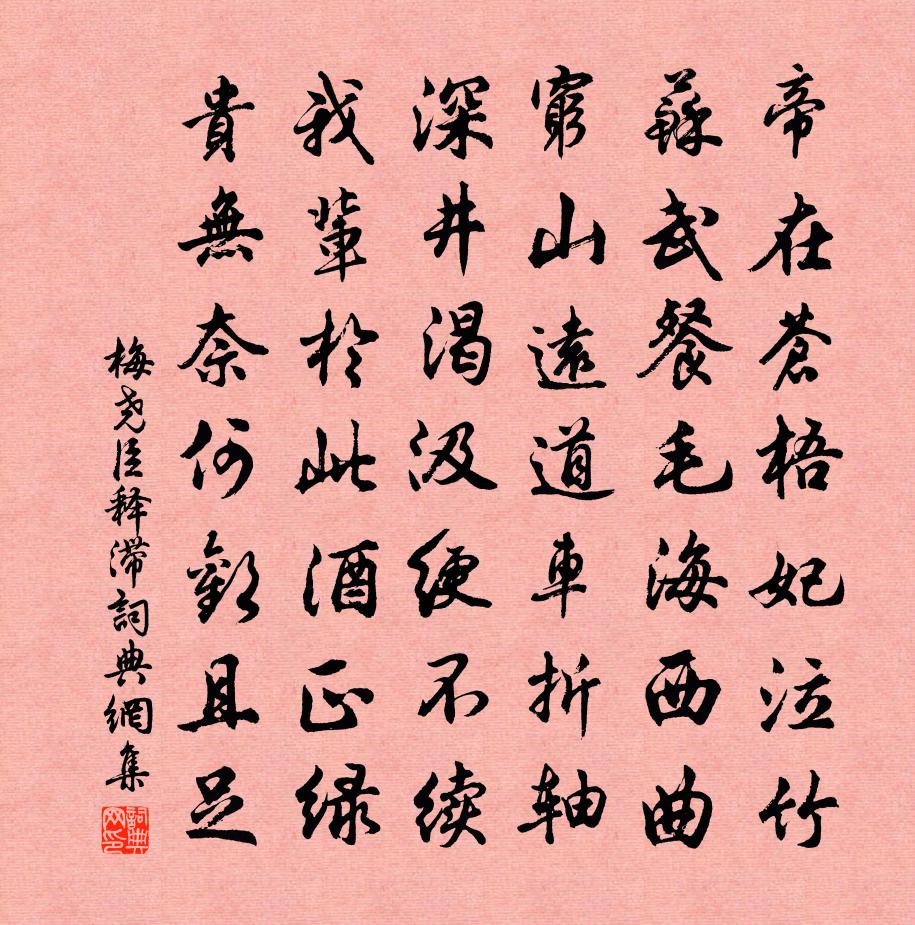 帝在蒼梧妃泣竹
蘇武餐毛海西曲
窮山遠道車折軸
深井渴汲綆不续
我輩於此酒正绿
貴無奈何歡且足
梅尧臣释滞詞典網集
詞典網印